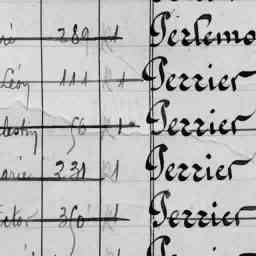 289 R1 Perlemo
Léon 111 R1 Perrier
lestin 56 R1 Perrier
arie 231 R1 Perrier
ictor 350 R1 Perrier